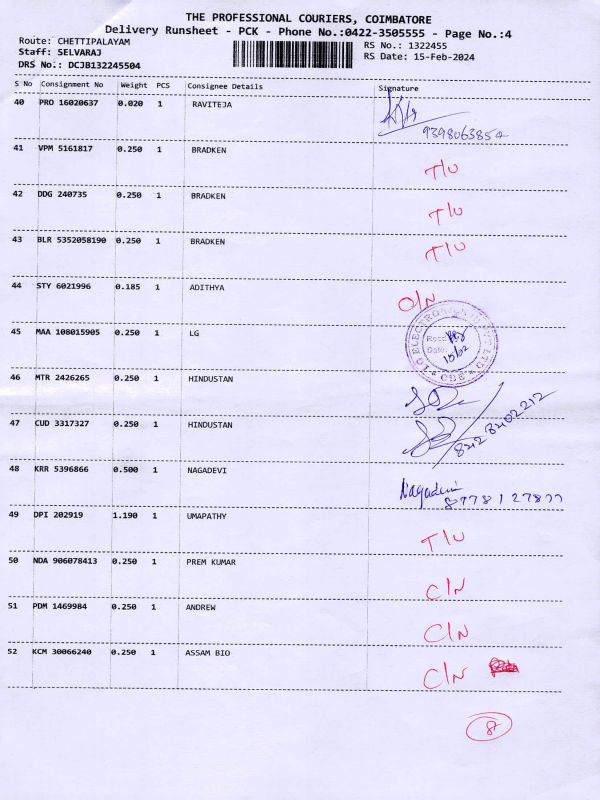 THE PROFESSIONAL COURIERS, COIMBATORE
Delivery Runsheet - PCK - Phone No.:0422-3505555 - Page No.:4
Route: CHETTIPALAYAM RS No.: 1322455
Staff: SELVARAJ RS Date: 15-Feb-2024
DRS No.: DCJB132245504
S No Consignment No Weight PCS Consignee Details Signature
40 PRO 16020637 0.020 1 RAVITEJA
9398063854
41 VPM 5161817 0.250 1 BRADKEN
T/U
42 DDG 240735 0.250 1 BRADKEN
T/U
43 BLR 5352058190 0.250 1 BRADKEN
T/U
44 STY 6021996 0.185 1 ADITHYA
O/N
45 MAA 108015905 0.250 1 LG
LG ELECTRONICS PVT LTD
CBE
Date: 15/02
46 MTR 2426265 0.250 1 HINDUSTAN
47 CUD 3317327 0.250 1 HINDUSTAN
8428402212
48 KRR 5396866 0.500 1 NAGADEVI
Nagadevi
8778127877
49 DPI 202919 1.190 1 UMAPATHY
T/U
50 NDA 906078413 0.250 1 PREM KUMAR
C/N
51 PDM 1469984 0.250 1 ANDREW
C/N
52 KCM 30066240 0.250 1 ASSAM BIO
C/N
8